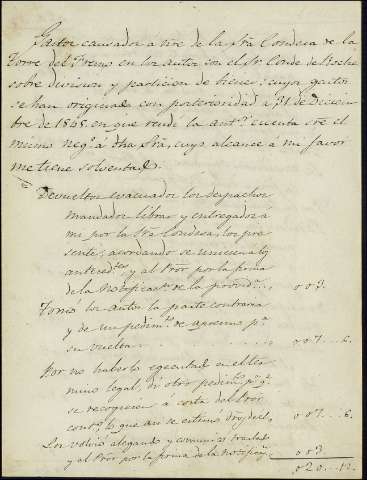 Gastos causados a nre. de la Sra. Condesa de la
Torre del Fresno en los autos con el Sr. Conde de
sobre division y particion de bienes: cuyos gastos
se han originado con posterioridad a 31 de Diciem
bre de 1845 en que rendi la ant.r cuenta sre. el
mismo neg.o á dha Sra, cuyo alcance a mi favor
me tiene solventado.
Devueltos evacuados los despachos
mandados librar y entregados á
mi por la Sra Condesa, los pre
senté, acordando se uniesen a los
anteced.tes, y al Pror por la firma
de la Notificac.n de la provid.a 003.
Tomó los autos la parte contraria
y di un pedim.to de apremio p.a
su vuelta 007...6.
Por no haberlo egecutado en el ter
mino legal, di otro pedim.to p.a q.e
se recogieran á costa del Pror
cont.o, lo que asi se estimó 007...6.
Los volvió alegando y comunicaron traslado
y al Pror por la firma de la notific.n 003.
020...12.